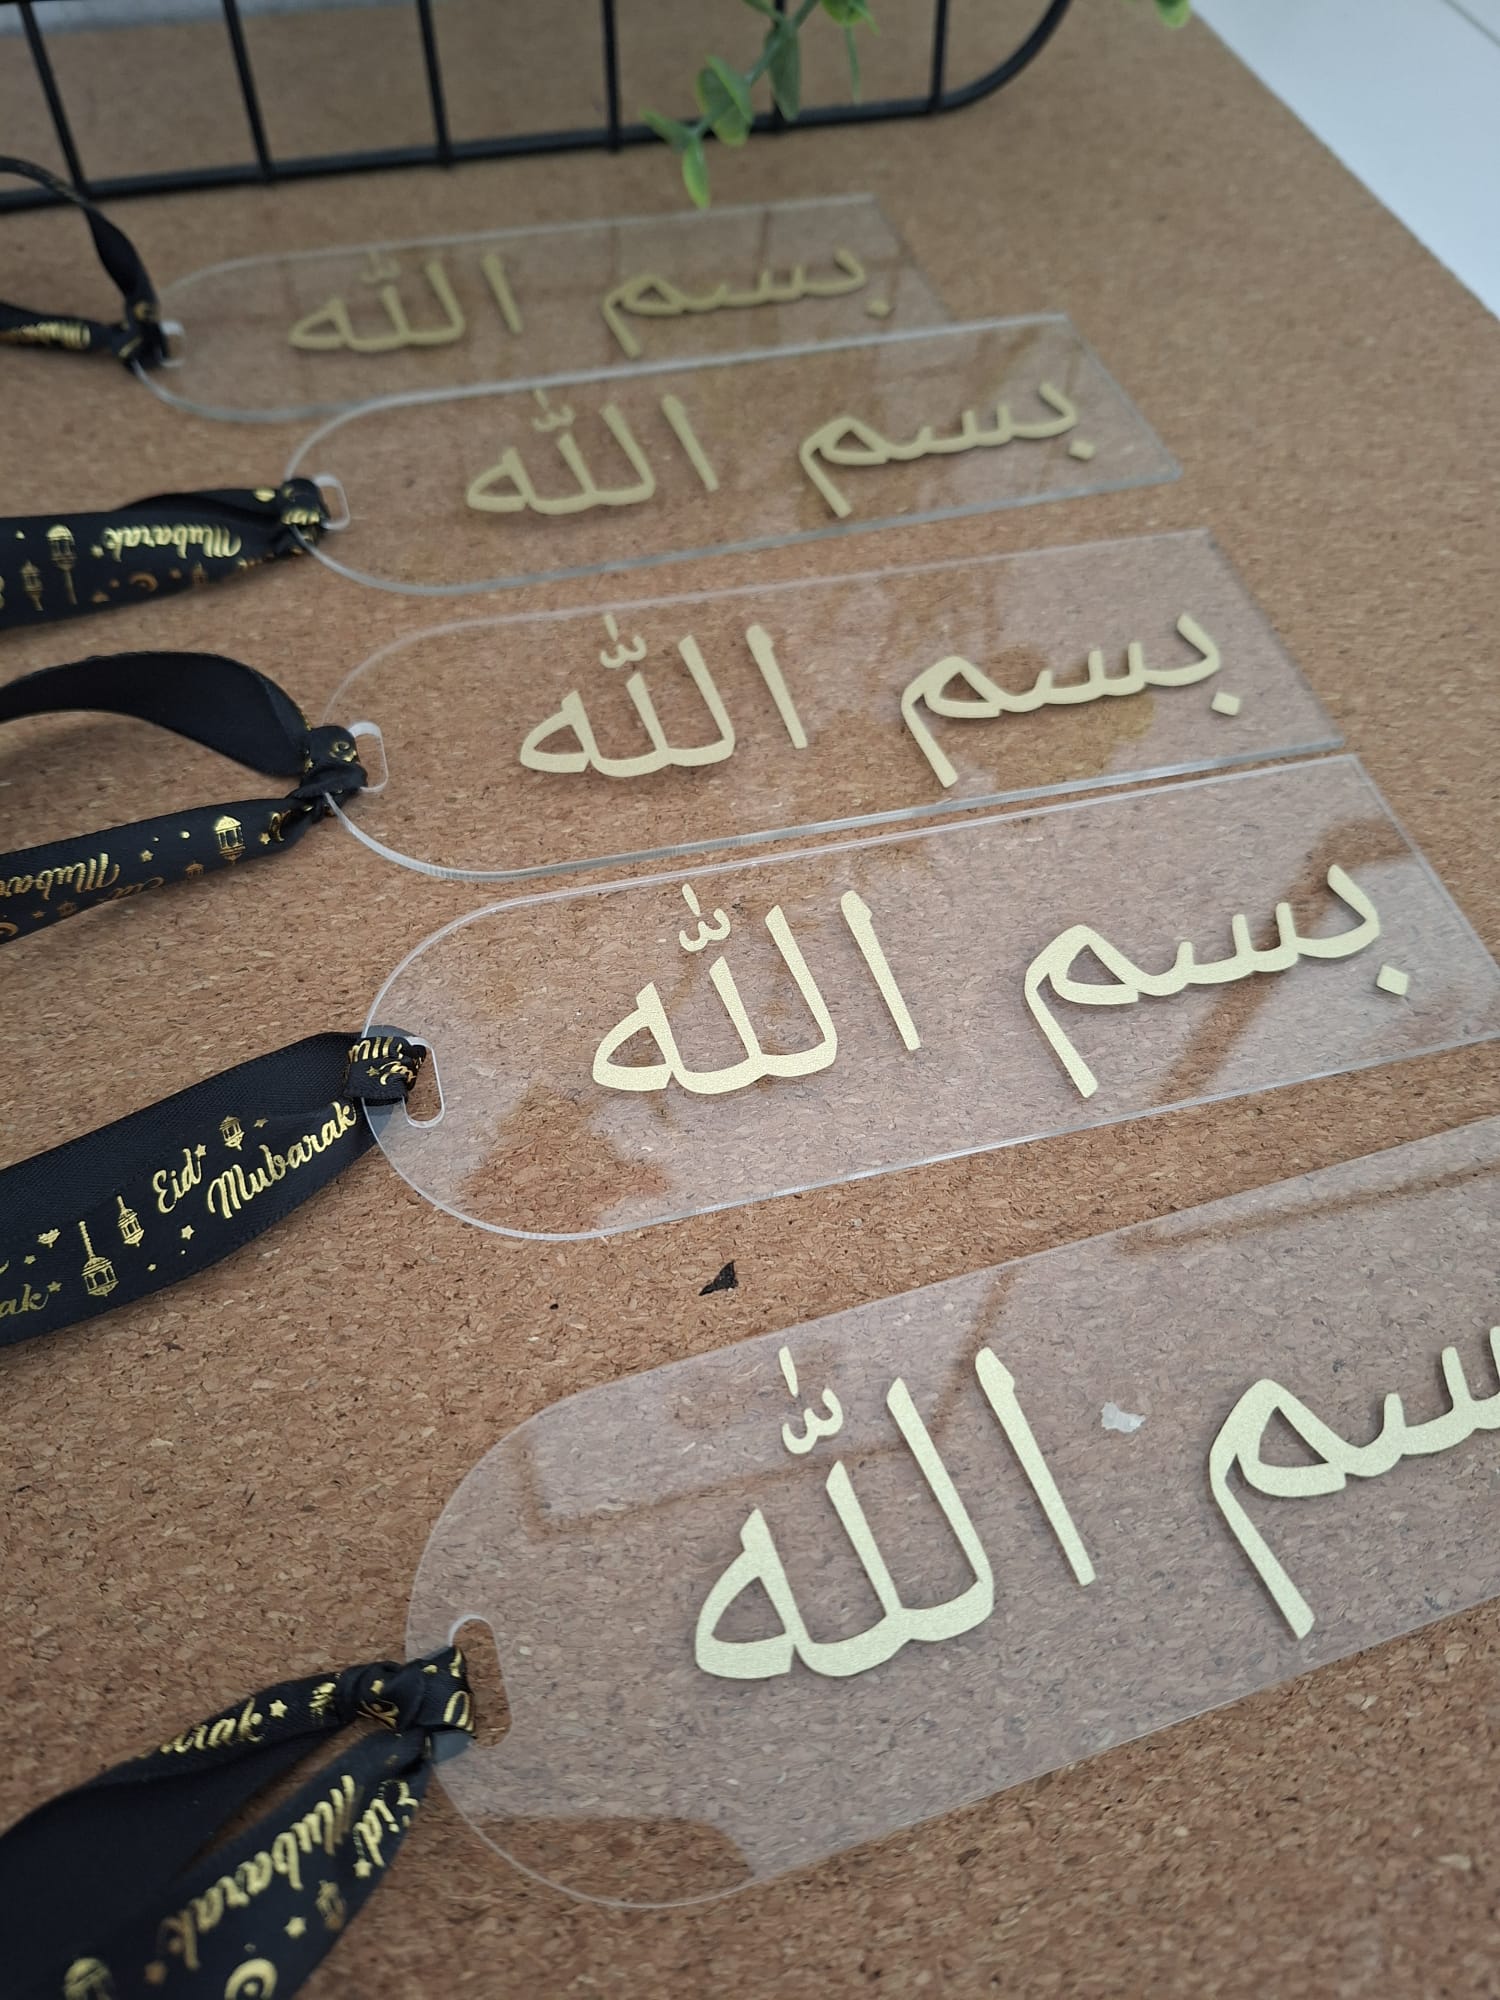 بسم الله
بسم الله
Mubarak
بسم الله
Mubarak
Eid
بسم الله
Eid
Mubarak
بسم الله
Eid
Mubarak